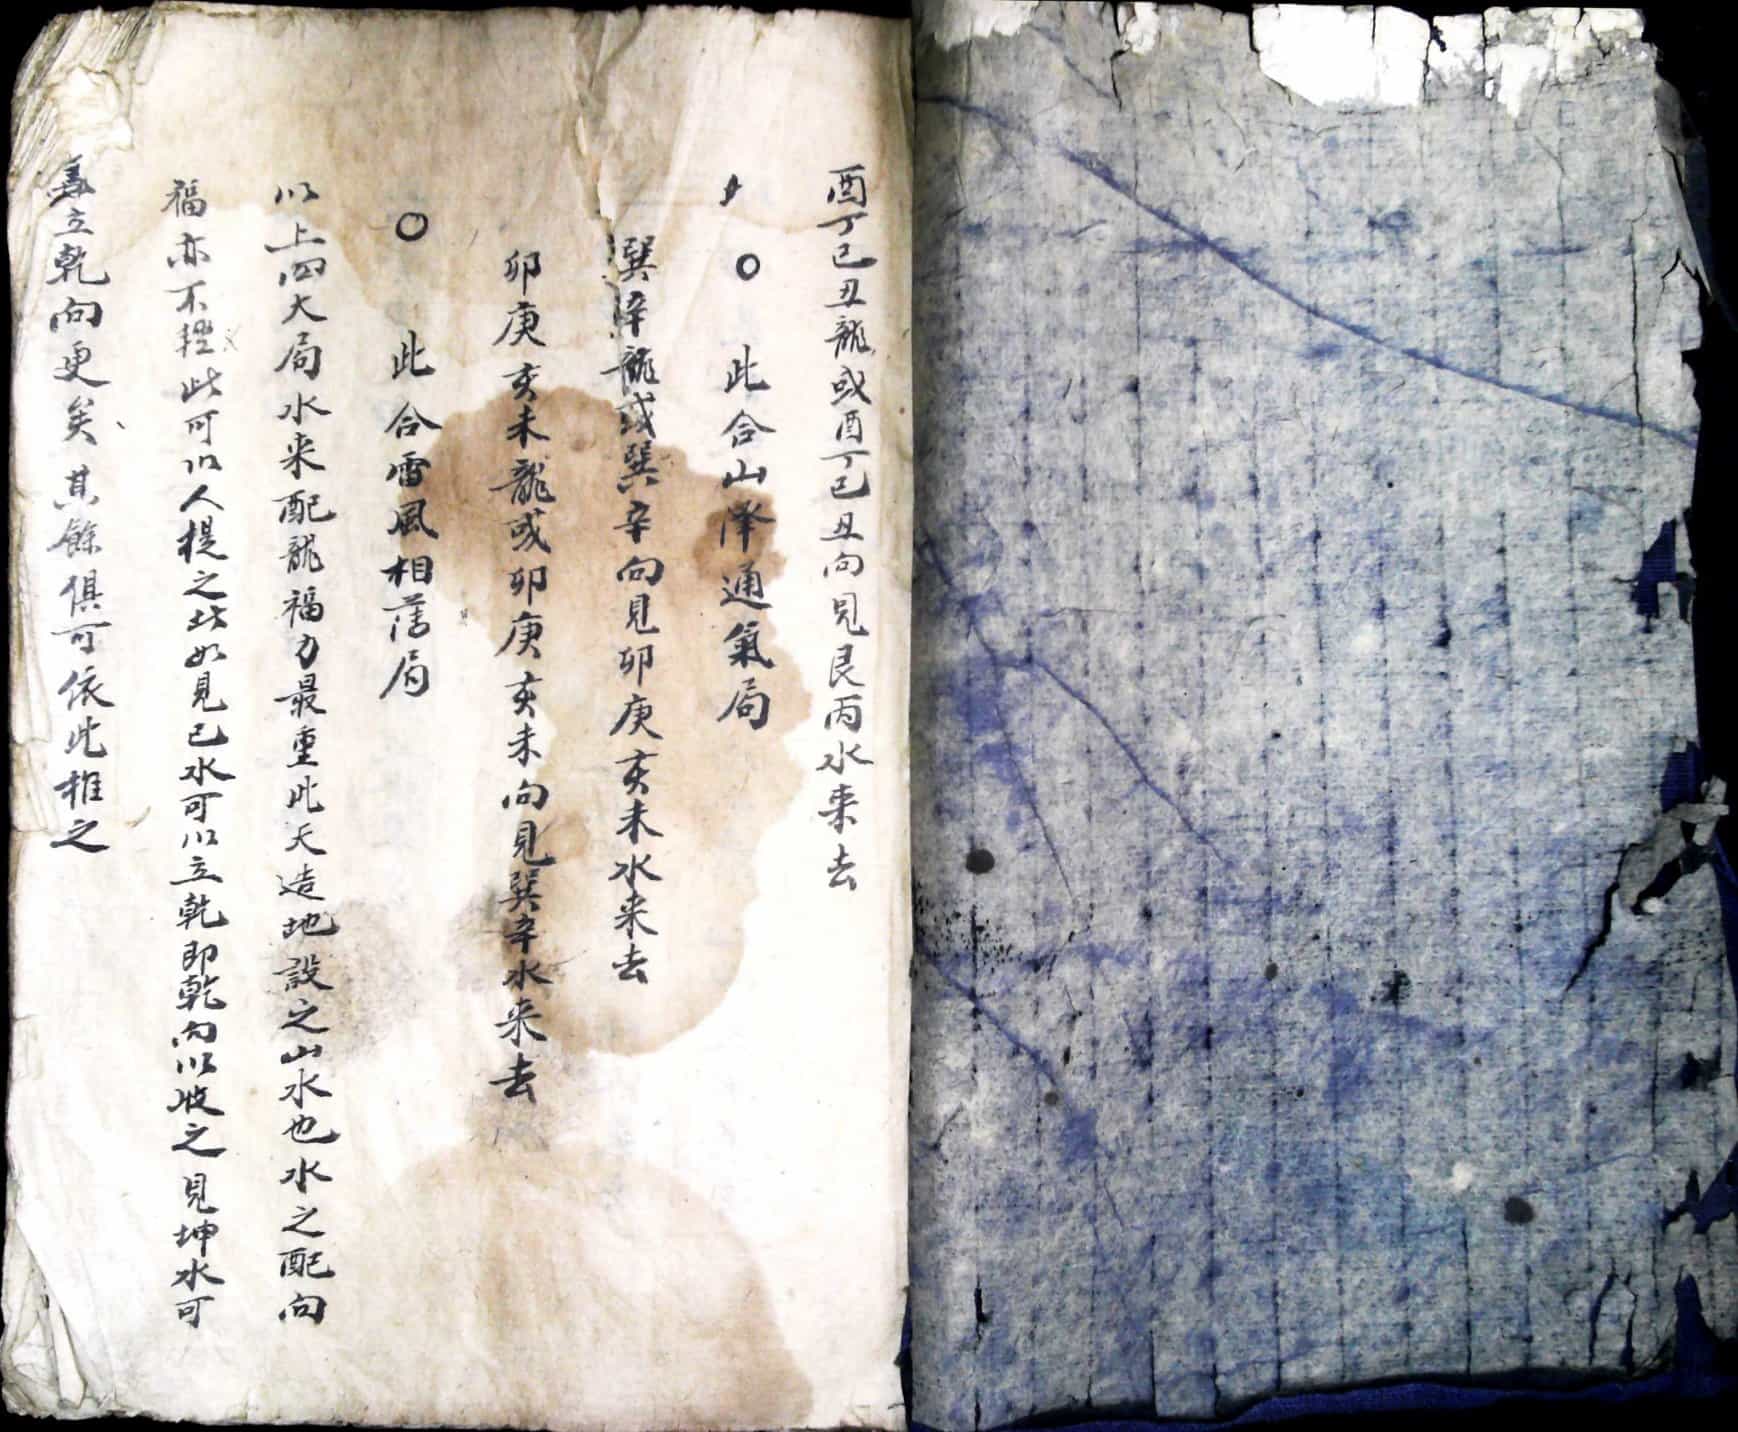 酉丁巳丑龍或酉丁巳丑向見艮丙水来去
○此合山澤通氣局
巽辛龍或巽辛向見卯庚亥未水来去
卯庚亥未龍或卯庚亥未向見巽辛水来去
○此合雷風相薄局
以上四大局水来配龍福力最重此天造地設之山水也水之配向
福亦不輕此可以人提之技如見巳水可以立乾即乾向以收之見坤水可
立乾向更矣其餘俱可依此推之